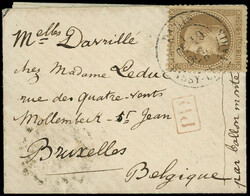 Melles Davrille
chez Madame Leduc
rue des Quatre-Vents
Molenbeek-St Jean
Bruxelles
Belgique
par ballon monté
PD